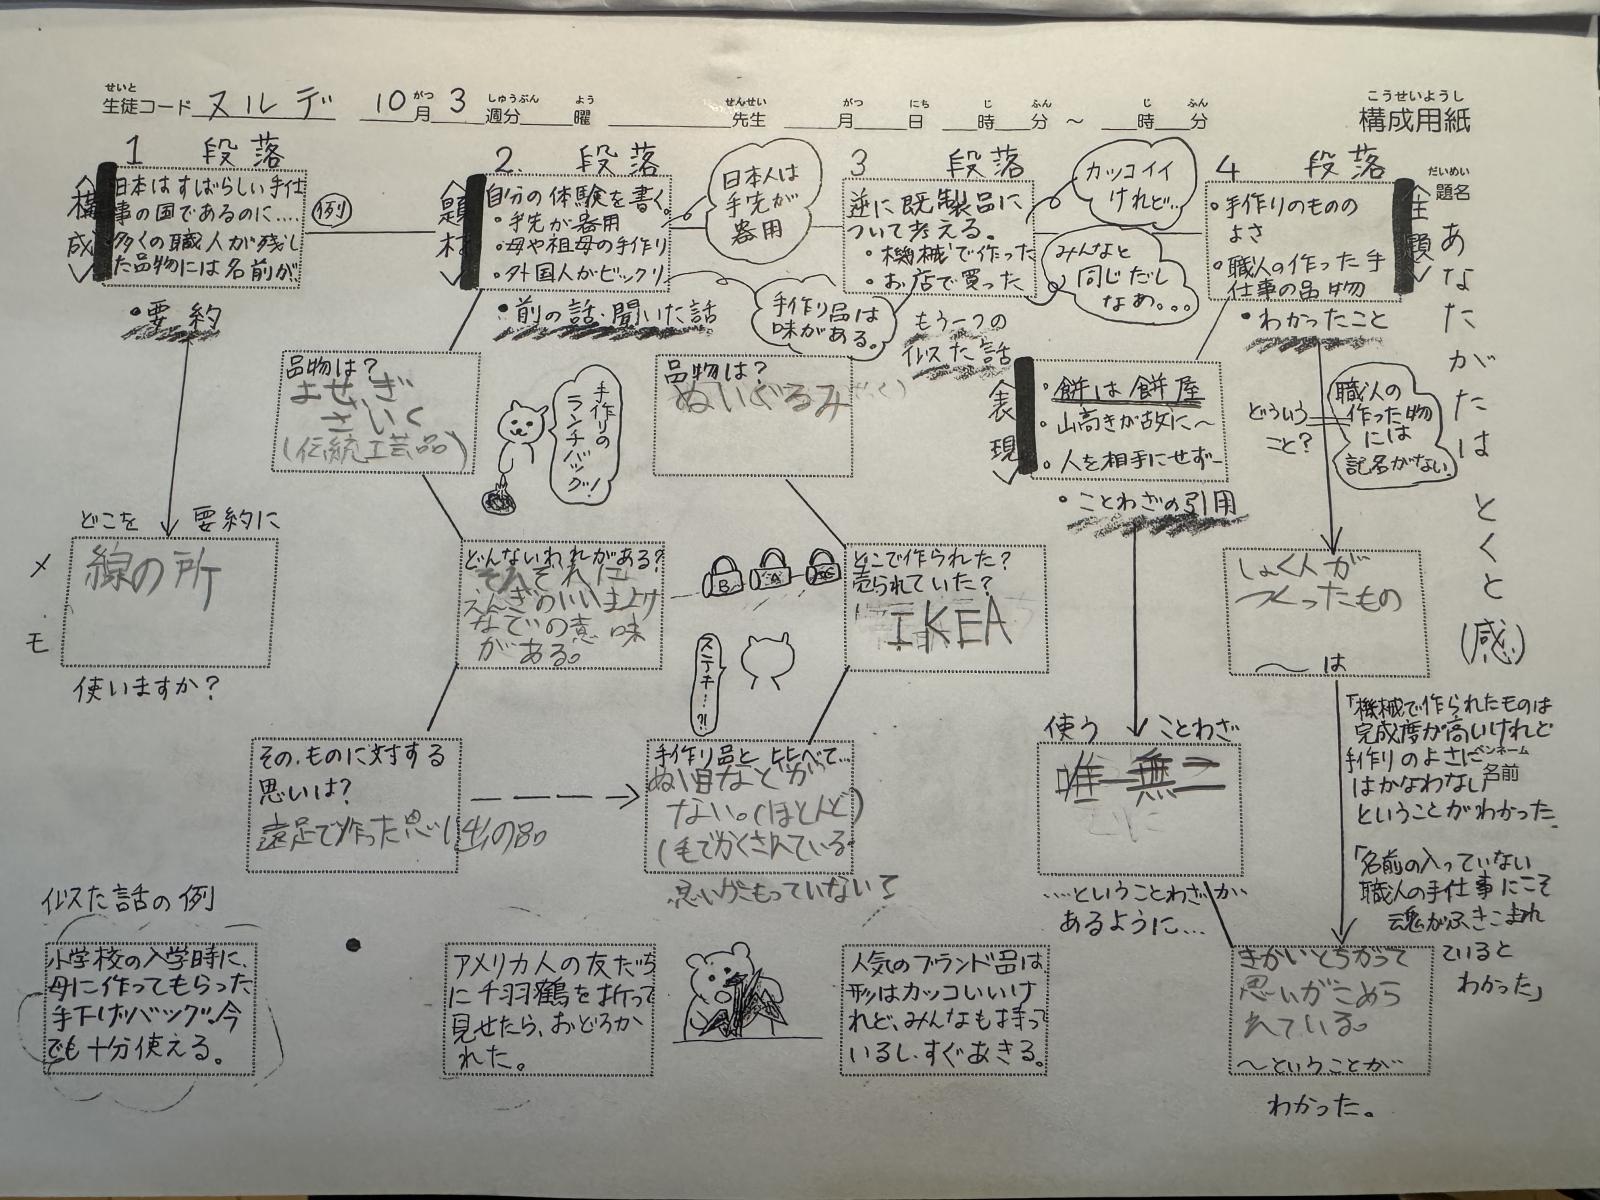 せいと がつ しゅうぶん よう せんせい がつ にち じ ふん じ ふん こうせいようし
生徒コード ヌルデ 10月 3 週分 曜 先生 月 日 時 分 ～ 時 分 構成用紙
だいめい
題名
あなたがたは とくと (感)
1 段落
〈構成〉
日本はすばらしい手仕
事の国であるのに....
・多くの職人が残し
た品物には名前が、
例
・要約
どこを 要約に
メモ
線の所
使いますか？
2. 段落
〈題材〉
自分の体験を書く。
・手先が器用
・母や祖母の手作り
・外国人がビックリ
日本人は
手先が
器用
・前の話・聞いた話
手作り品は
味がある。
品物は？
よせぎ
ざいく
(伝統工芸品)
手作りの
ランチバッグ!
どんないわれがある？
それぞれに
えんぎのいい
などの意味
がある。
その、ものに対する
思いは？
遠足で作った思い出の品
3 段落
逆に既製品に
ついて考える。
・機械で作った
・お店で買った
カッコイイ
けれど…
みんなと
同じだし
なあ。。。
もう一つの
似た話
品物は？
ぬいぐるみ
どこで作られた？
売られていた？
IKEA
ステキ…?!
手作り品と比べて…
ぬい目などが
ない。(ほとんど)
(毛でかくされている
思いがこもっていない
4 段落
〈主題〉
・手作りのものの
よさ
・職人の作った手
仕事の品物
・わかったこと
〈表現〉
・餅は餅屋
・山高きが故に～
・人を相手にせず─
・ことわざの引用
どういう
こと？
職人の
作った物
には
記名がない。
しょく人が
つくったもの
～は
使う ことわざ
唯一無二
....ということわざが
あるように...
「機械で作られたものは
完成度が高いけれど
手作りのよさに
はかなわない
ということがわかった。
ペンネーム
名前
「名前の入っていない
職人の手仕事にこそ
魂がふきこまれ
ていると
わかった」
きかいとちがって
思いがこめら
れている。
～ということが
わかった。
似た話の例
小学校の入学時に、
母に作ってもらった
手下げバッグ。今
でも十分使える。
アメリカ人の友だち
に千羽鶴を折って
見せたら、おどろか
れた。
人気のブランド品は、
形はカッコいいけ
れど、みんなも持って
いるし、すぐあきる。